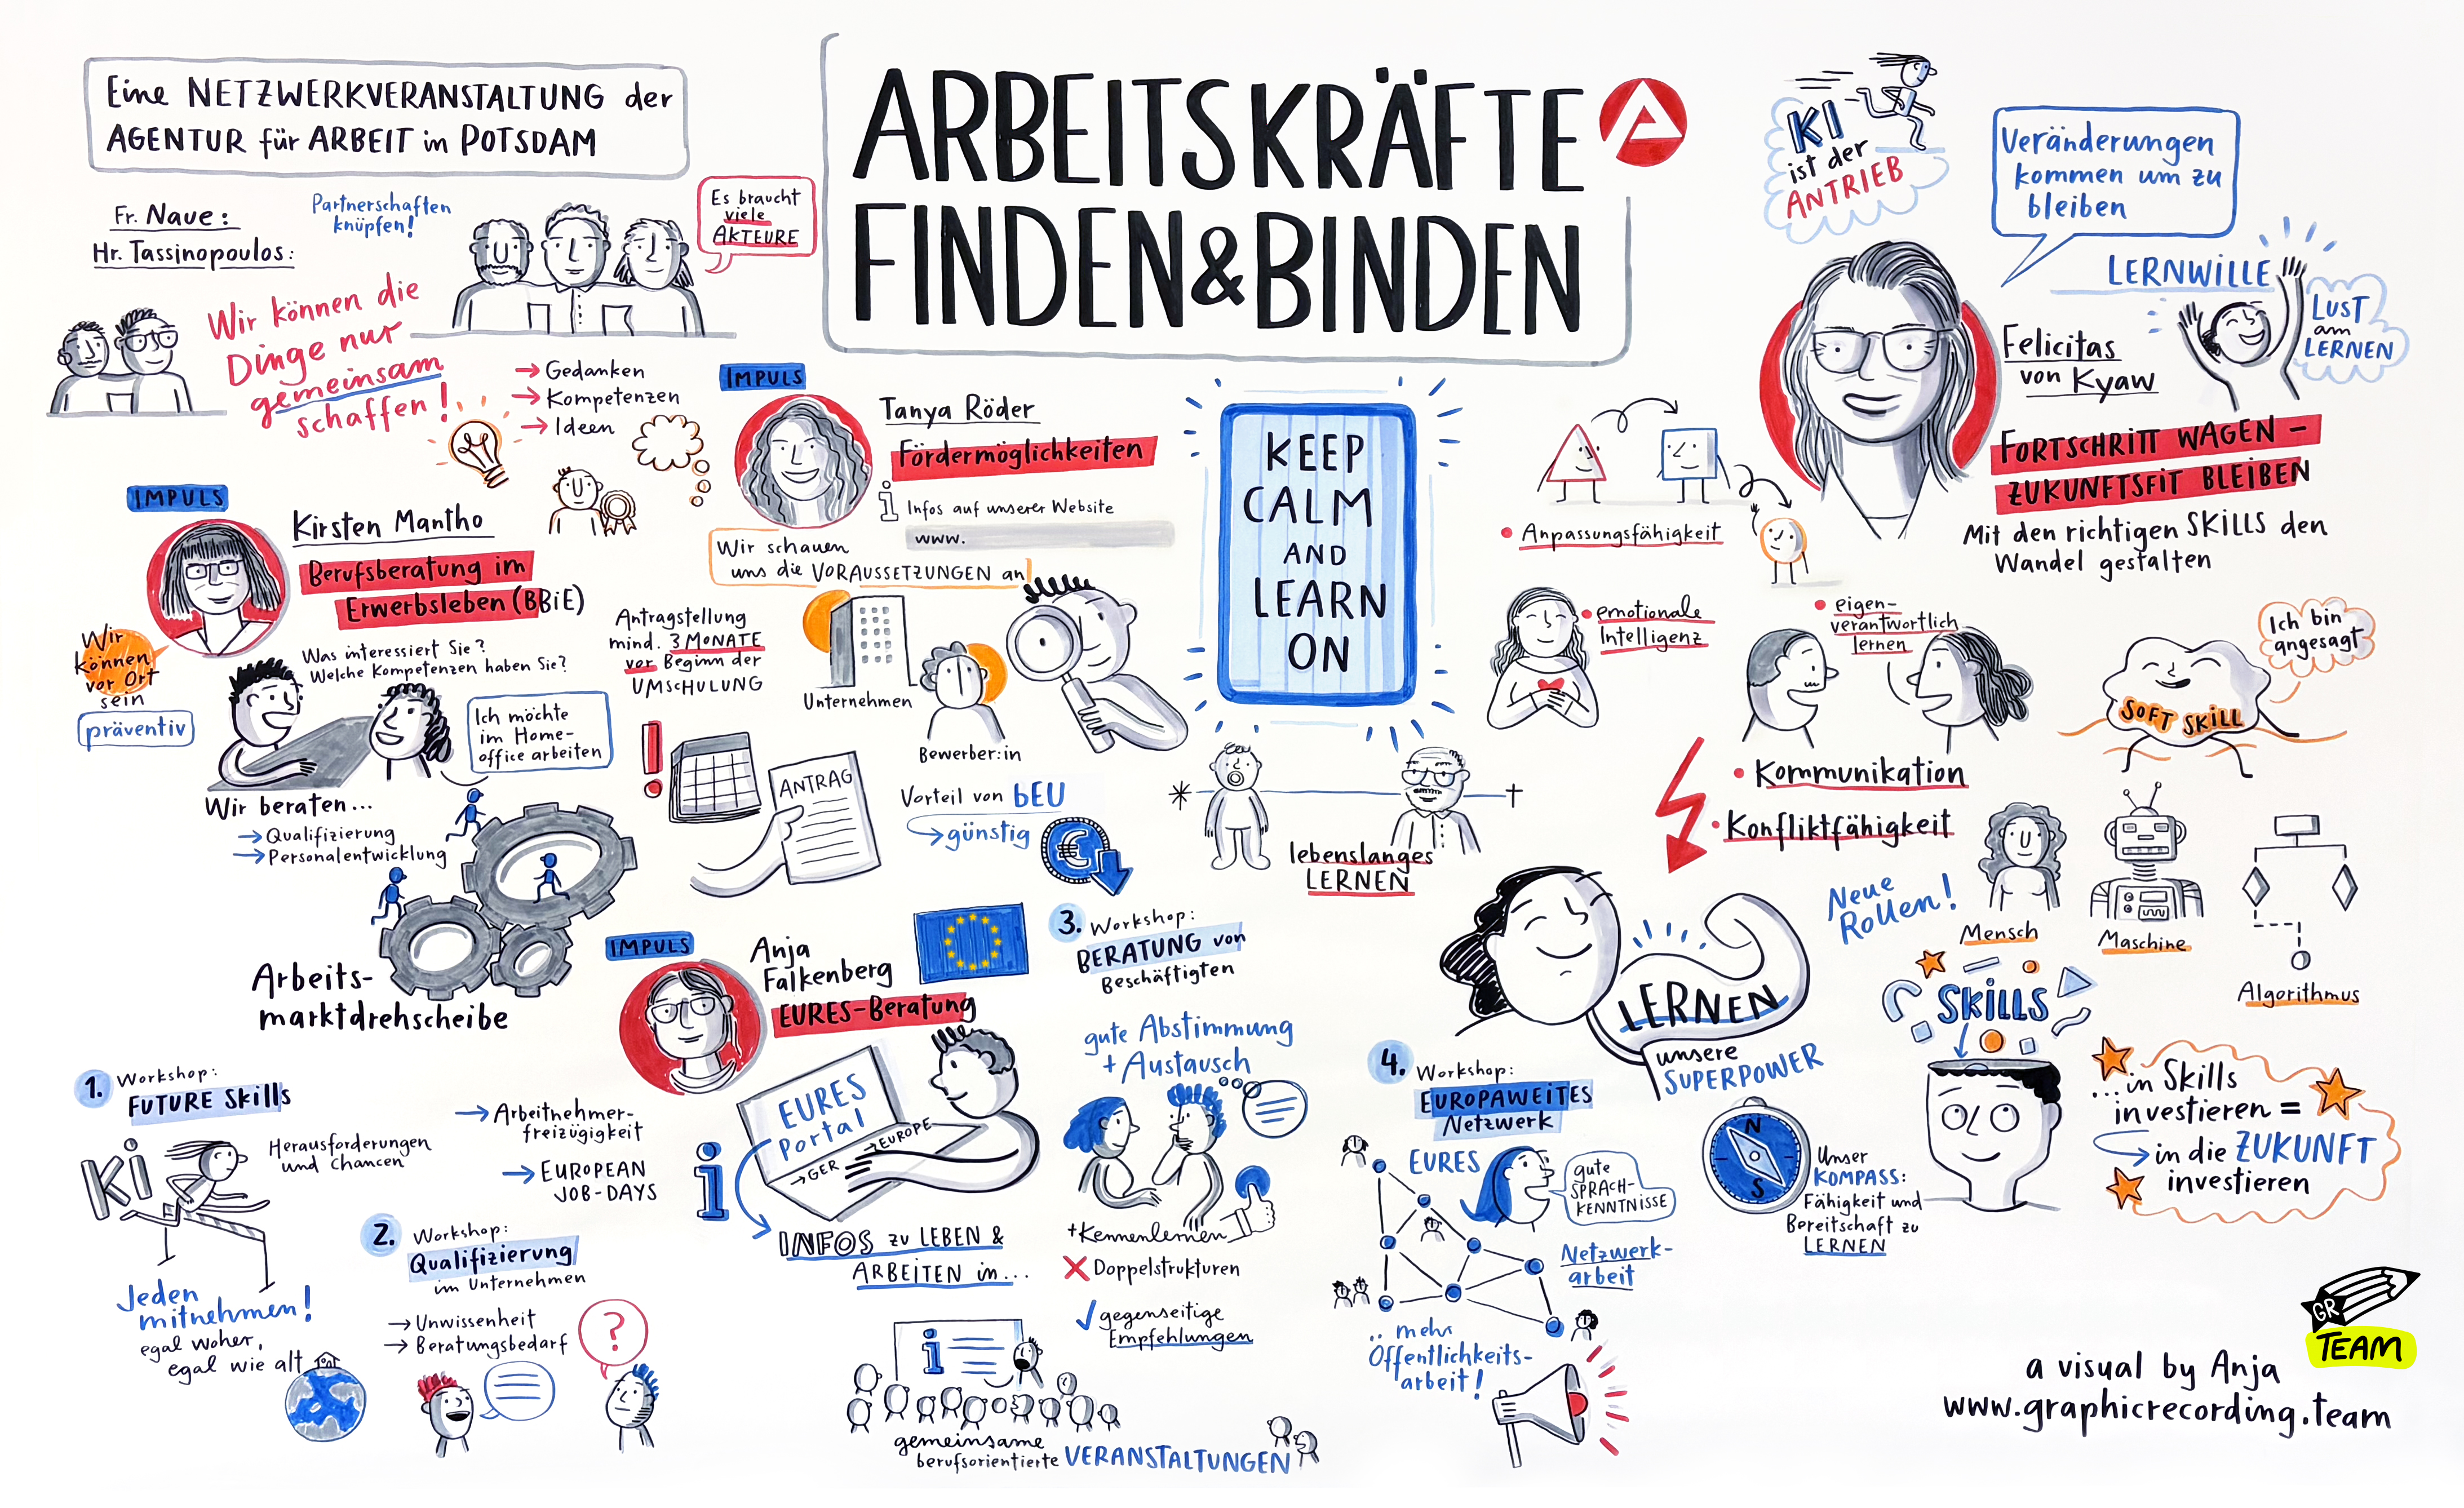 Eine NETZWERKVERANSTALTUNG der
AGENTUR für ARBEIT in POTSDAM
ARBEITSKRÄFTE
FINDEN & BINDEN
Fr. Naue:
Hr. Tassinopoulos:
Partnerschaften
knüpfen!
Es braucht
viele
AKTEURE
Wir können die
Dinge nur
gemeinsam
schaffen!
→ Gedanken
→ Kompetenzen
→ Ideen
IMPULS
Kirsten Mantho
Berufsberatung im
Erwerbsleben (BBiE)
Wir
können
vor Ort
sein
präventiv
Was interessiert Sie?
Welche Kompetenzen haben Sie?
Ich möchte
im Home-
office arbeiten
Wir beraten...
→ Qualifizierung
→ Personalentwicklung
Arbeits-
marktdrehscheibe
IMPULS
Tanya Röder
Fördermöglichkeiten
i Infos auf unserer Website
www.
Wir schauen
uns die VORAUSSETZUNGEN an
Antragstellung
mind. 3 MONATE
vor Beginn der
UMSCHULUNG
Unternehmen
Bewerber:in
!
ANTRAG
Vorteil von bEU
→ günstig
€
KEEP
CALM
AND
LEARN
ON
lebenslanges
LERNEN
KI
ist der
ANTRIEB
Veränderungen
kommen um zu
bleiben
LERNWILLE
LUST
am
LERNEN
Felicitas
von Kyaw
FORTSCHRITT WAGEN -
ZUKUNFTSFIT BLEIBEN
Mit den richtigen SKILLS den
Wandel gestalten
• Anpassungsfähigkeit
• emotionale
Intelligenz
• eigen-
verantwortlich
lernen
• Kommunikation
• Konfliktfähigkeit
Ich bin
angesagt
SOFT SKILL
Neue
Rollen!
Mensch
Maschine
Algorithmus
LERNEN
unsere
SUPERPOWER
SKILLS
N
S
Unser
KOMPASS:
Fähigkeit und
Bereitschaft zu
LERNEN
...in Skills
investieren =
→ in die ZUKUNFT
investieren
IMPULS
Anja
Falkenberg
EURES-Beratung
→ Arbeitnehmer-
freizügigkeit
→ EUROPEAN
JOB-DAYS
EURES
Portal
→ GER
→ EUROPE
i
INFOS zu LEBEN &
ARBEITEN in...
1. Workshop:
FUTURE Skills
KI
Herausforderungen
und Chancen
Jeden
mitnehmen!
egal woher,
egal wie alt
2. Workshop:
Qualifizierung
im Unternehmen
→ Unwissenheit
→ Beratungsbedarf
?
3. Workshop:
BERATUNG von
Beschäftigten
gute Abstimmung
+ Austausch
+ Kennenlernen
X Doppelstrukturen
✓ gegenseitige
Empfehlungen
i
gemeinsame
berufsorientierte VERANSTALTUNGEN
4. Workshop:
EUROPAWEITES
Netzwerk
EURES
gute
SPRACH-
KENNTNISSE
Netzwerk-
arbeit
.. mehr
Öffentlichkeits-
arbeit!
GR
TEAM
a visual by Anja
www.graphicrecording.team